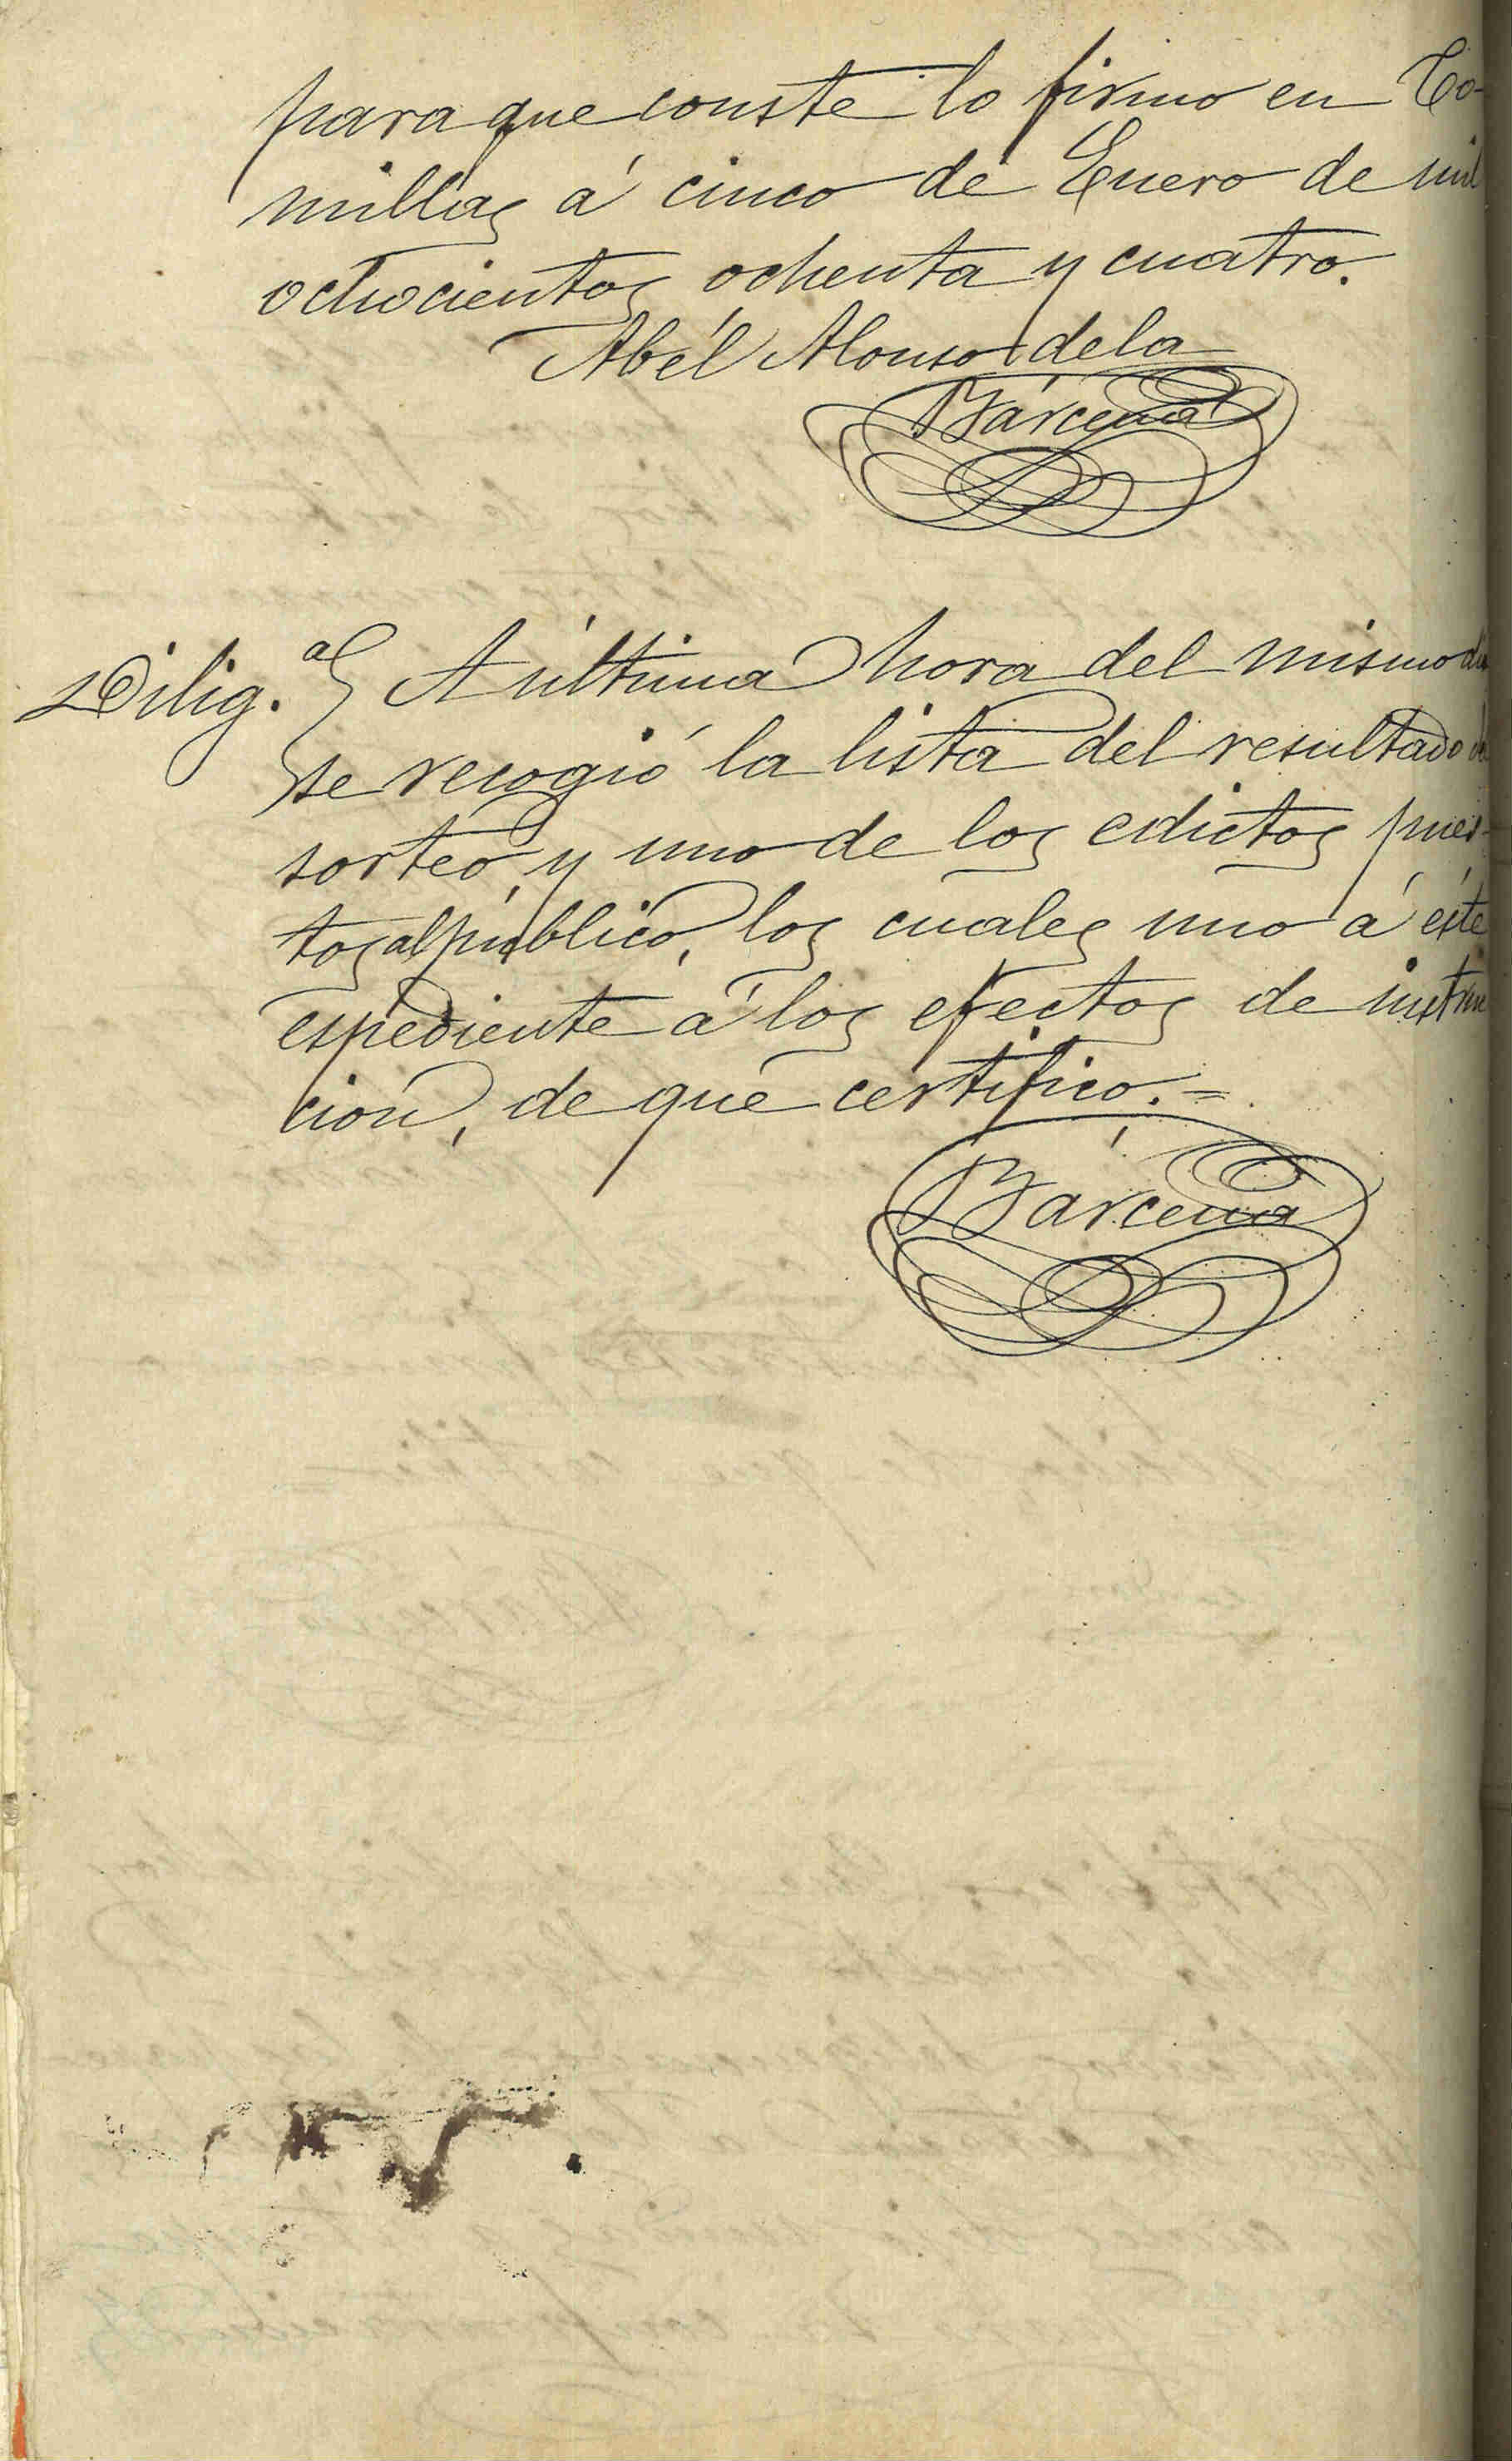 para que conste lo firmo en Co-
millas á cinco de Enero de mil
ochocientos ochenta y cuatro.
Abél Alonso de la
Bárcena
Dilig.ª A última hora del mismo dia
se recogió la lista del resultado del
sorteo, y uno de los edictos pues-
tos al público, los cuales uno á éste
espediente á los efectos de instruc
ción, de que certifico.=
Bárcena